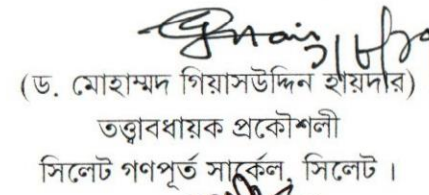 (ড. মোহাম্মদ গিয়াসউদ্দিন হায়দার)
তত্ত্বাবধায়ক প্রকৌশলী
সিলেট গণপূর্ত সার্কেল, সিলেট ।